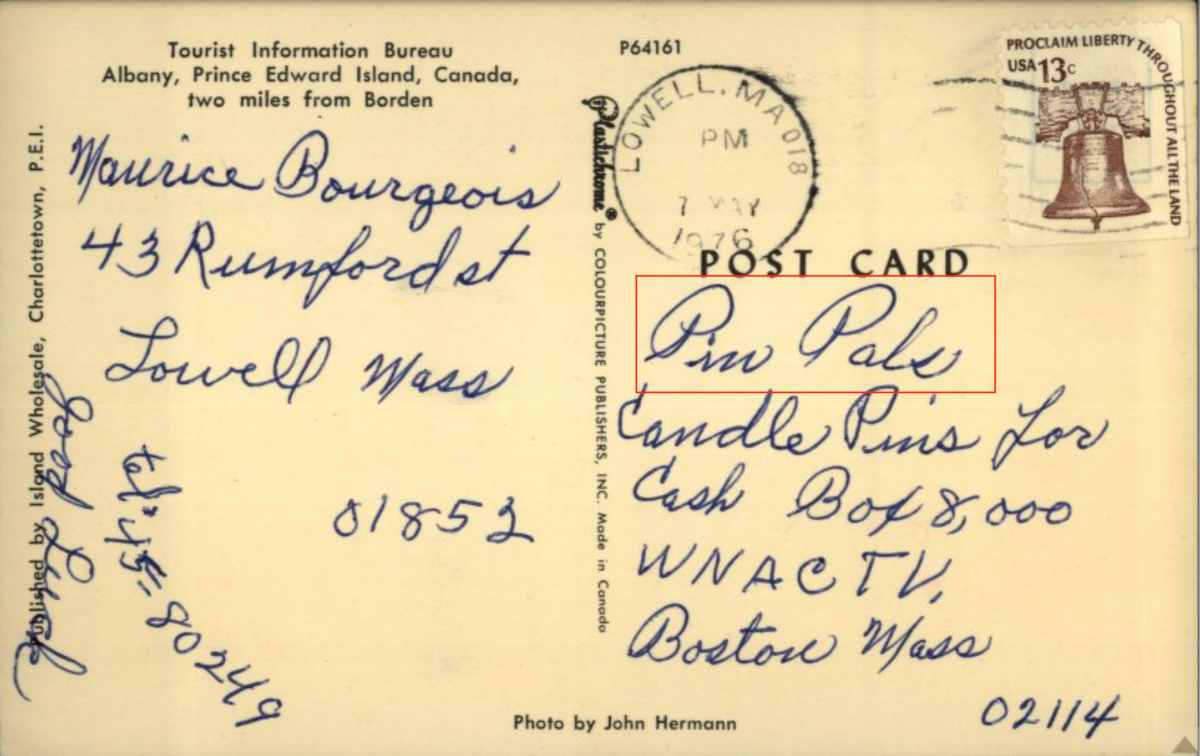 Tourist Information Bureau
Albany, Prince Edward Island, Canada,
two miles from Borden
Maurice Bourgeois
43 Rumford st
Lowell Mass
01852
tel. 45-80249
Good Luck
Published by Island Wholesale, Charlottetown, P.E.I.
Plastichrome® by COLOURPICTURE PUBLISHERS, INC. Made in Canada
P64161
LOWELL, MA 018
PM
7 MAY
1976
PROCLAIM LIBERTY THROUGHOUT ALL THE LAND
USA 13c
POST CARD
Pin Pals
Candle Pins For
Cash Box 8,000
WNAC TV,
Boston Mass
02114
Photo by John Hermann